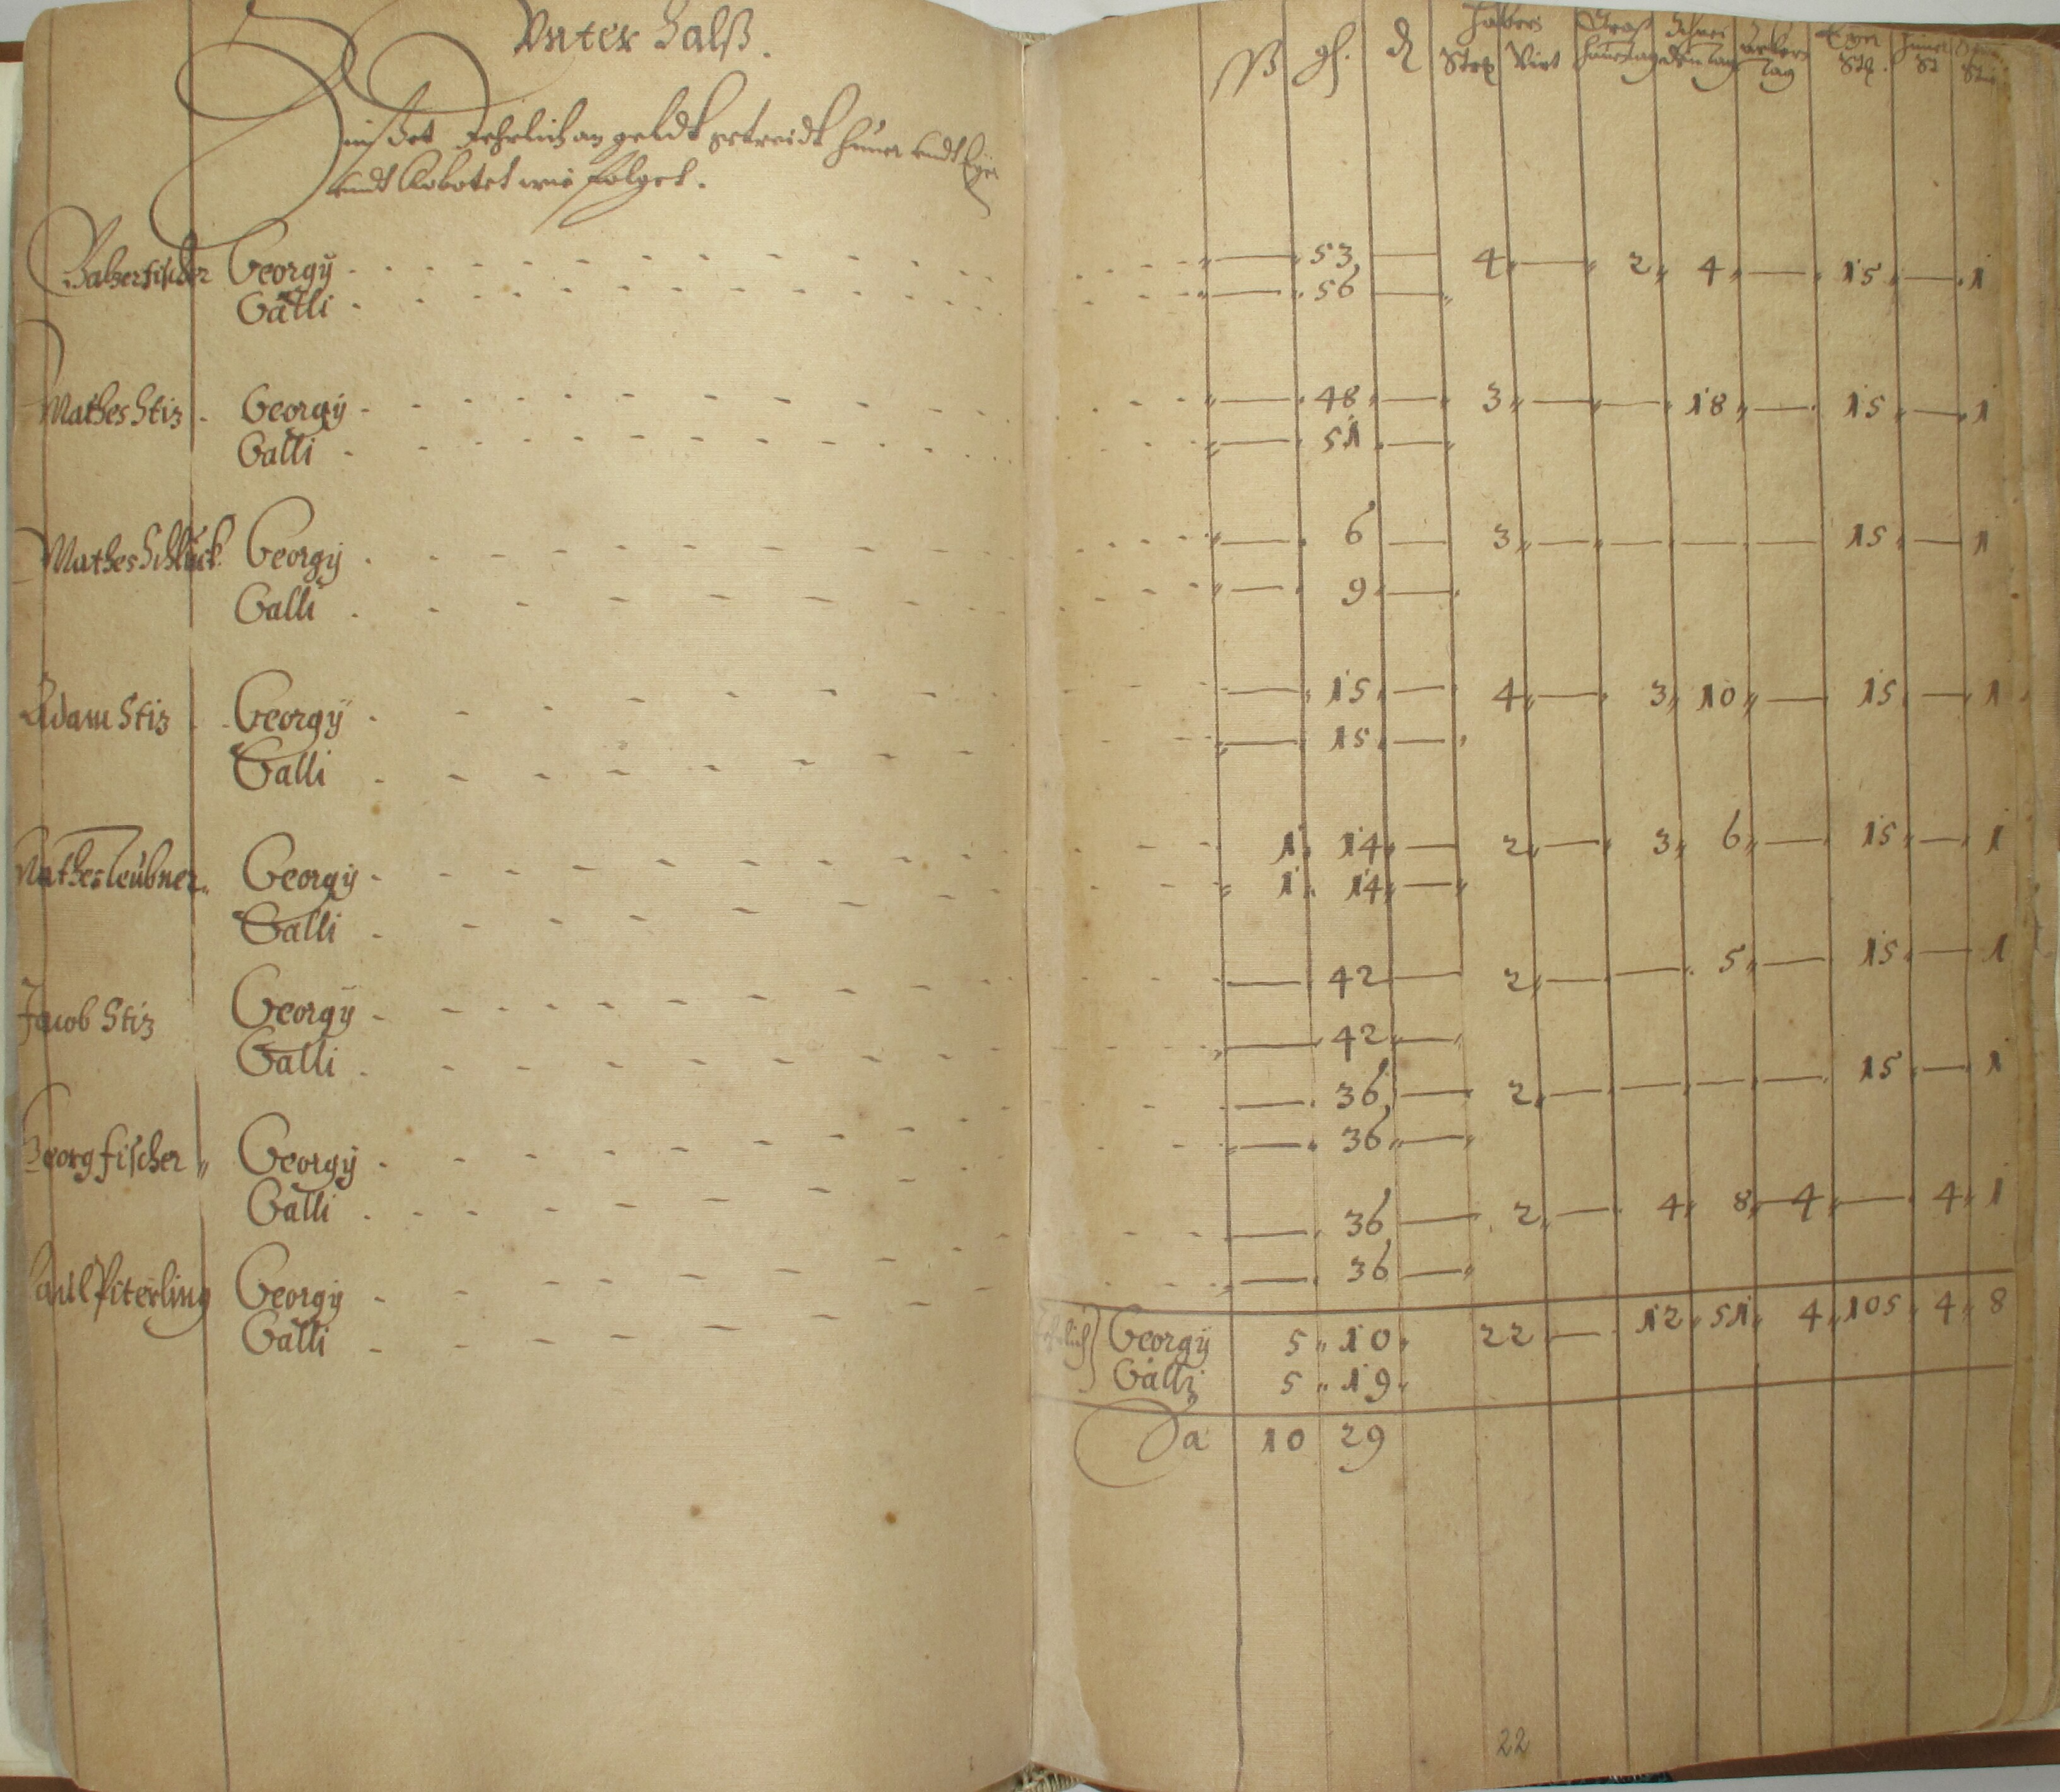 Vnter Halß.
Zinßet Jehrlich an geldt getreidt hüner vndt Eyer
vndt Robotet wie folget.
ßß gl. d Habern Strß Graß Schnei Acker Eyer Hüner
Strh Virt tag tag Stk. St
Balzer fischer Georgÿ 53 4 2 4 15 1
Galli 56
Mathes Stiz Georgÿ 48 3 18 15 1
Galli 51
Mathes Schluck Georgÿ 6 3 15 1
Galli 9
Adam Stiz Georgÿ 15 4 3 10 15 1
Galli 15
Mathes Teübner Georgÿ 1 14 2 3 6 15 1
Galli 1 14
Jacob Stiz Georgÿ 42 2 5 15 1
Galli 42
Georg fischer Georgÿ 36 2 15 1
Galli 36
Paul Piterling Georgÿ 36 2 4 8 4 4 1
Galli 36
Georgÿ 5 10 22 12 51 4 105 4 8
Galli 5 19
Sa 10 29
22